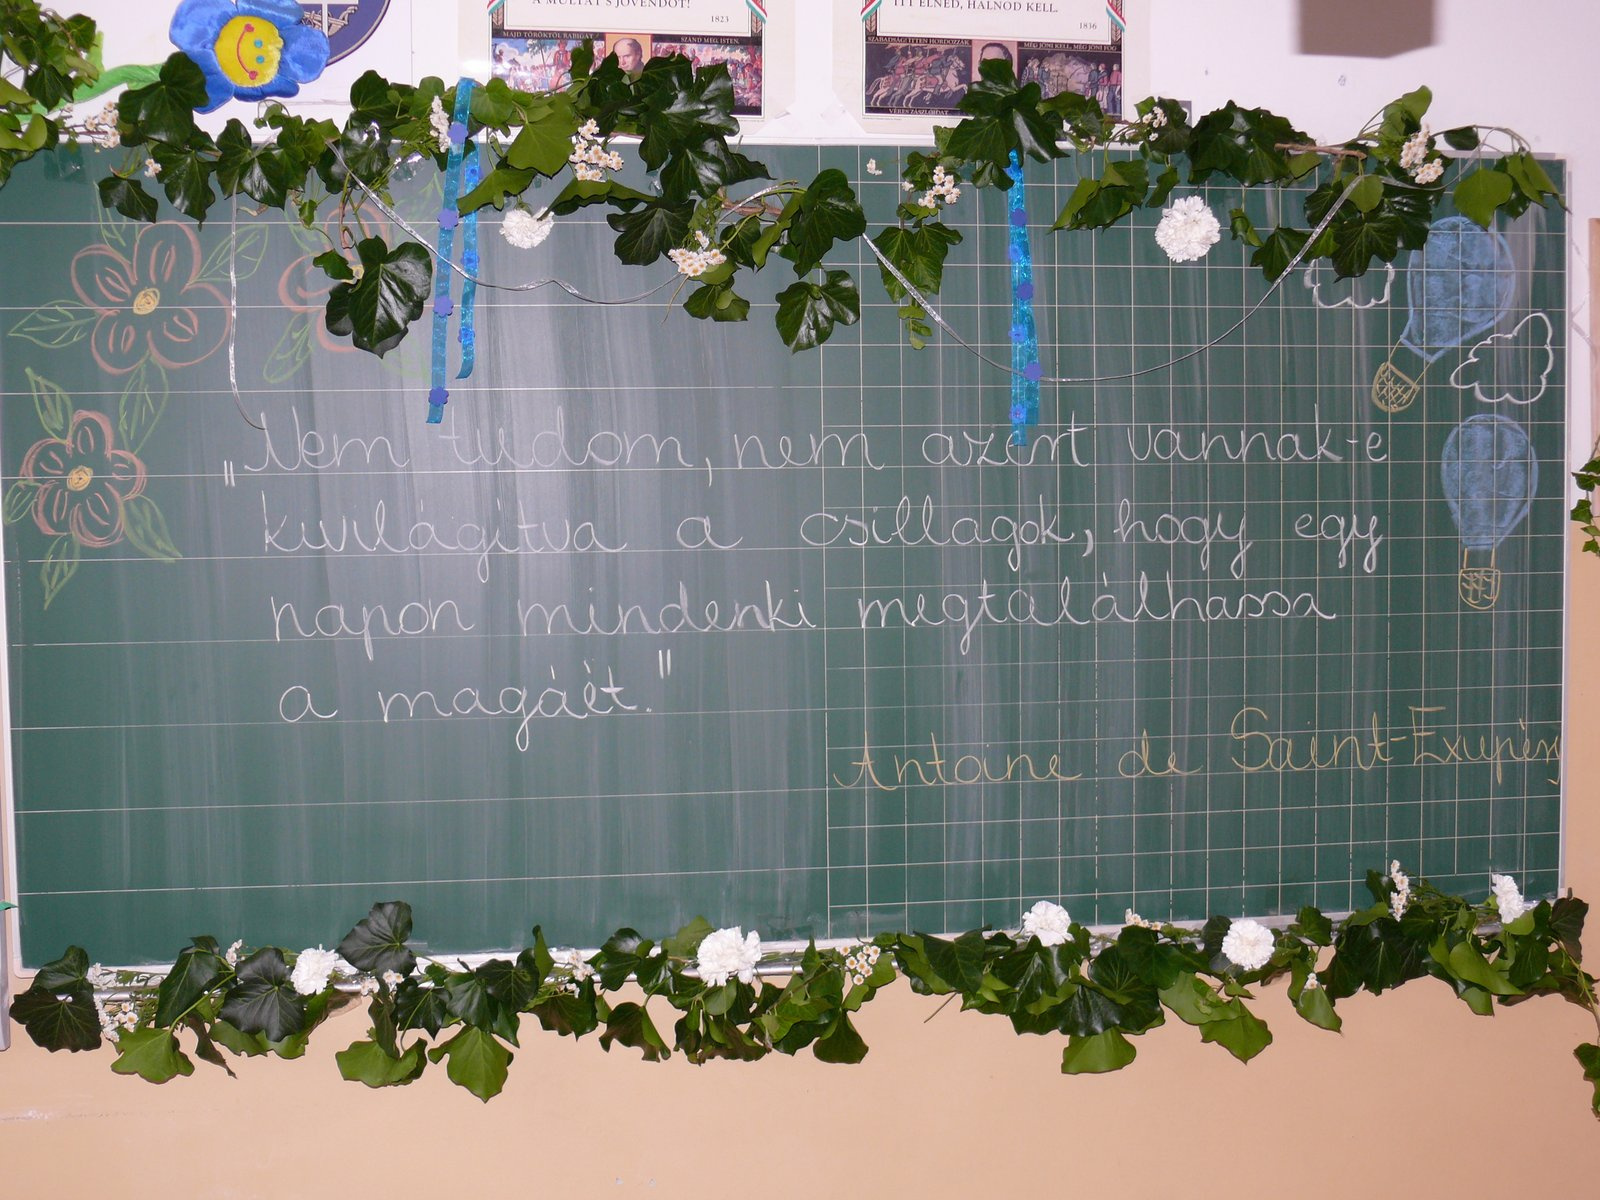 A MÚLTAT S JÖVENDŐT!
1823
MAJD TÖRÖKTŐL RABIGÁT
SZÁND MEG, ISTEN,
ITT ÉLNED, HALNOD KELL.
1836
SZABADSÁG! ITTEN HORDOZZÁK
MÉG JŐNI KELL, MÉG JŐNI FOG
VÉRES ZÁSZLÓIDAT,
„Nem tudom, nem azért vannak-e
kivilágítva a csillagok, hogy egy
napon mindenki megtalálhassa
a magáét."
Antoine de Saint-Exupéry